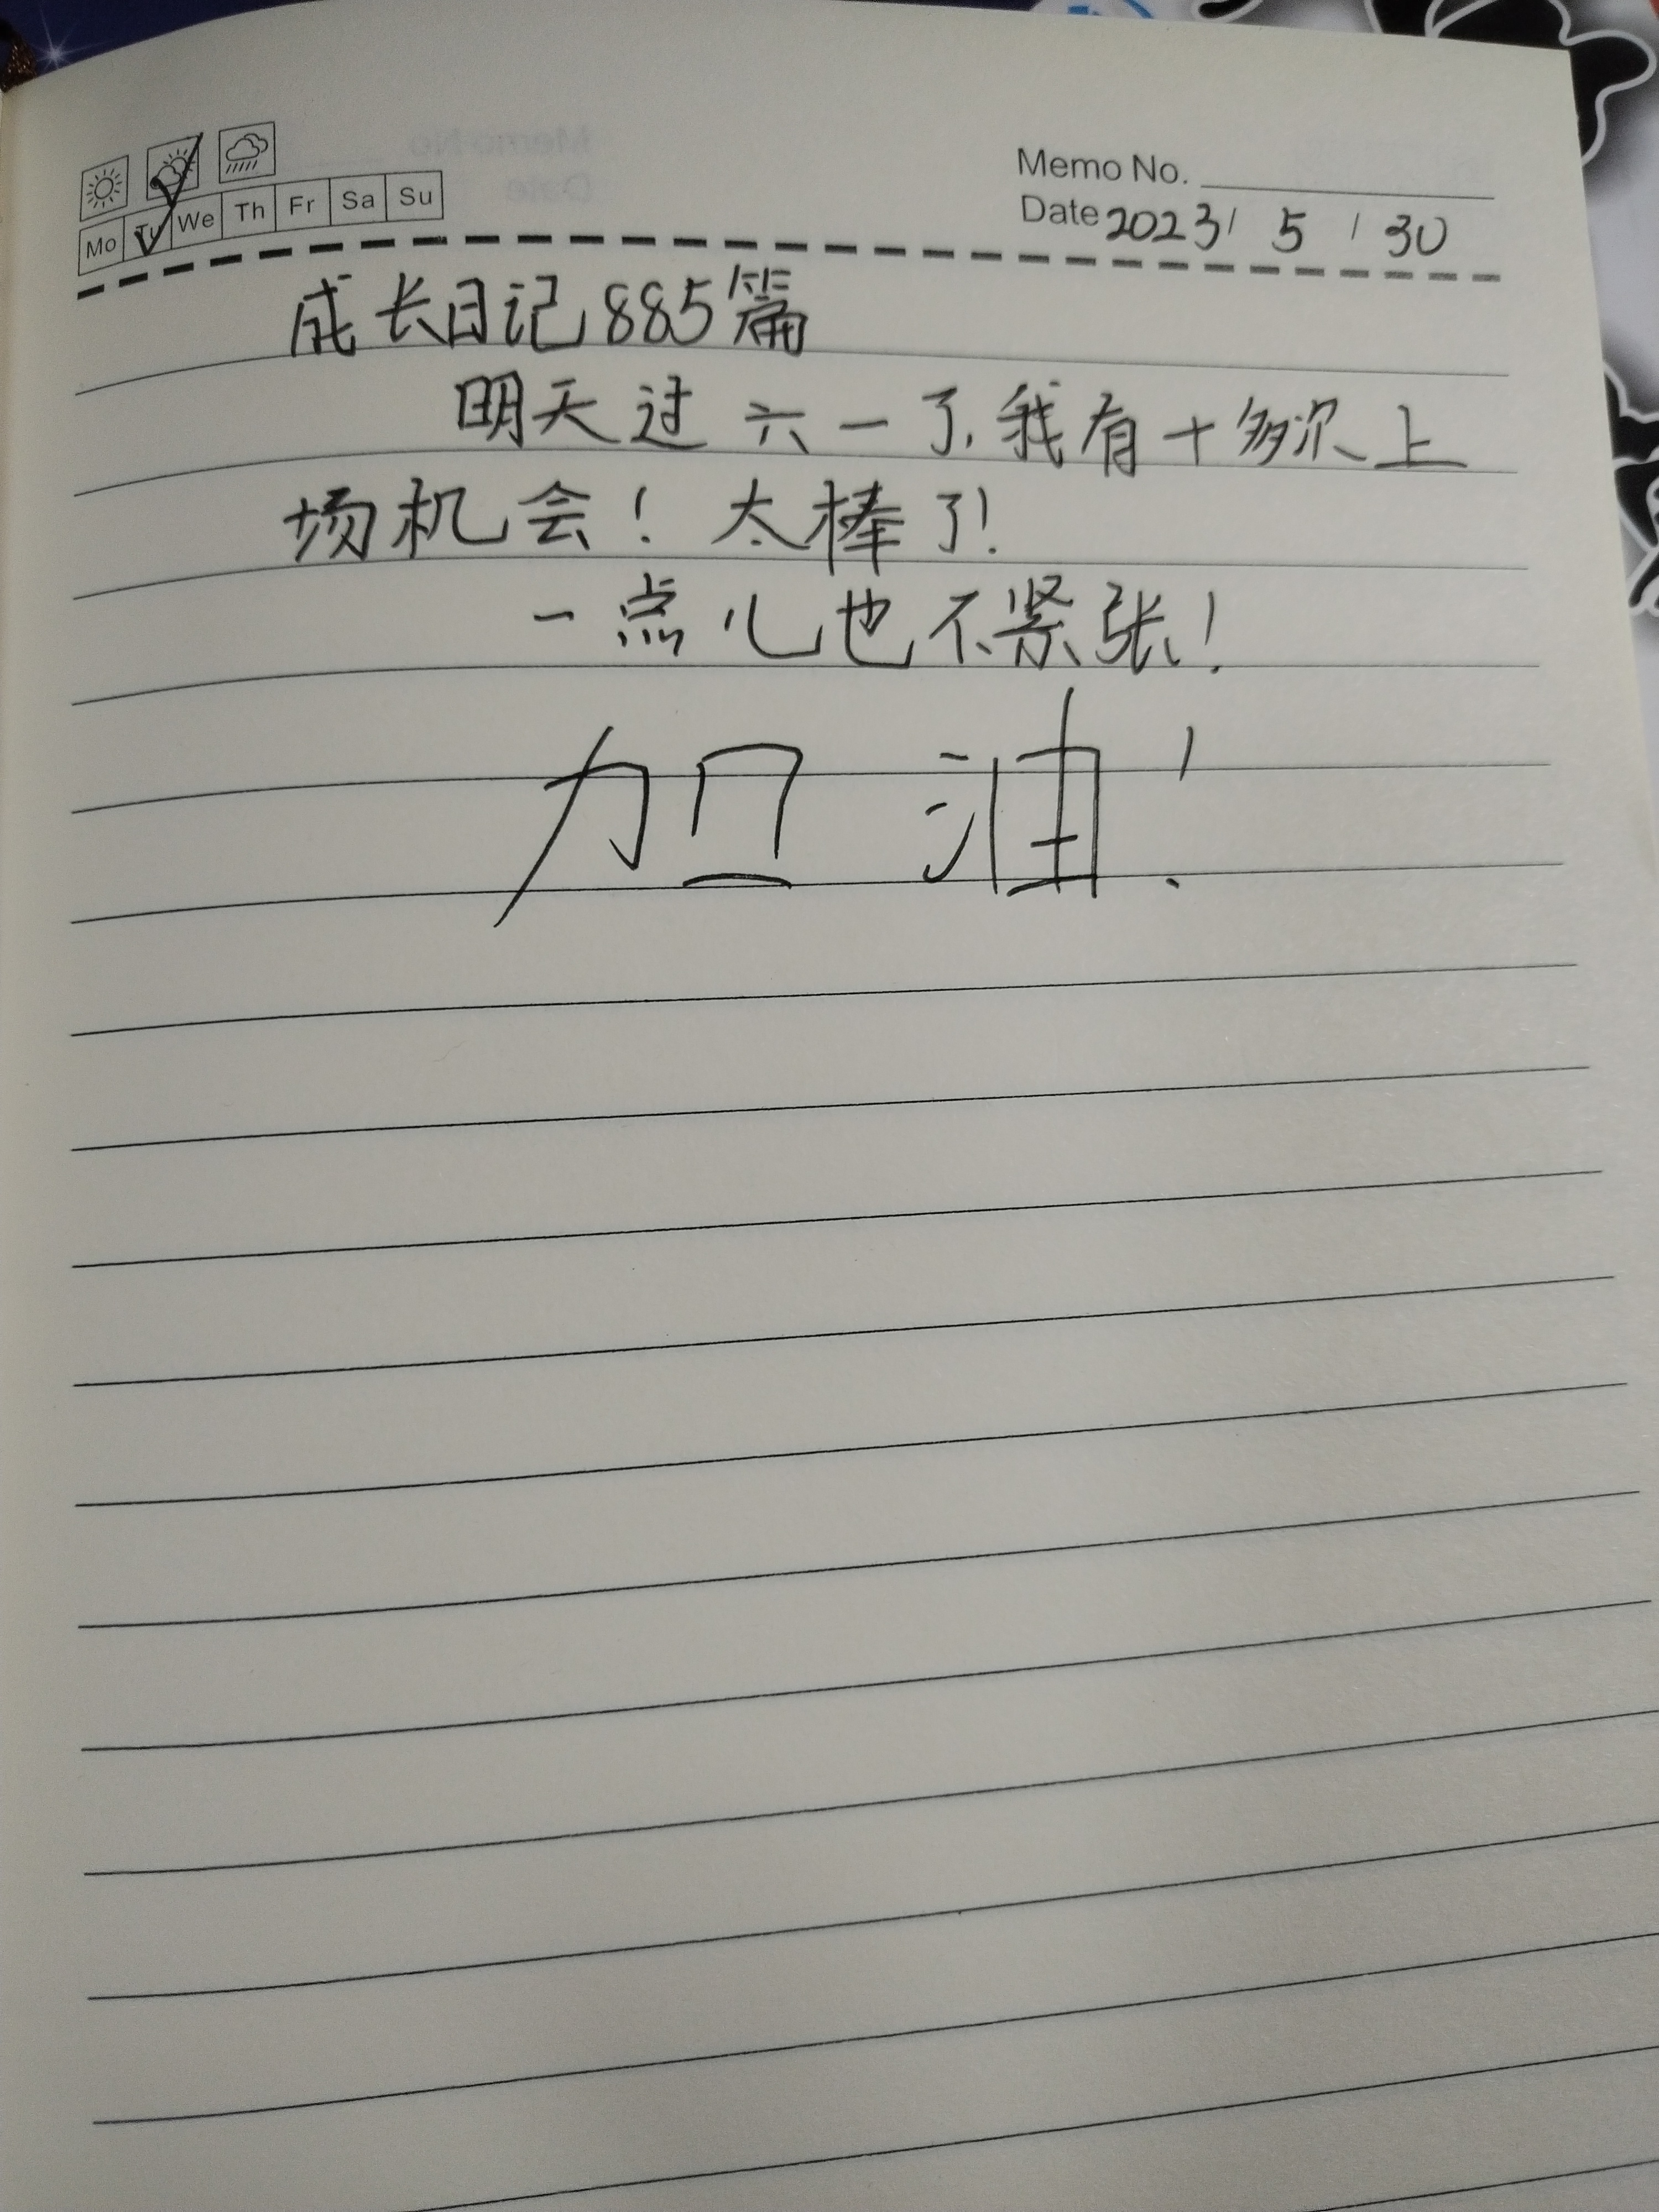 Memo No.
Mo Tu We Th Fr Sa Su
Date 2023 / 5 / 30
成长日记885篇
明天过六一了,我有十多次上
场机会!太棒了!
一点儿也不紧张!
加油!